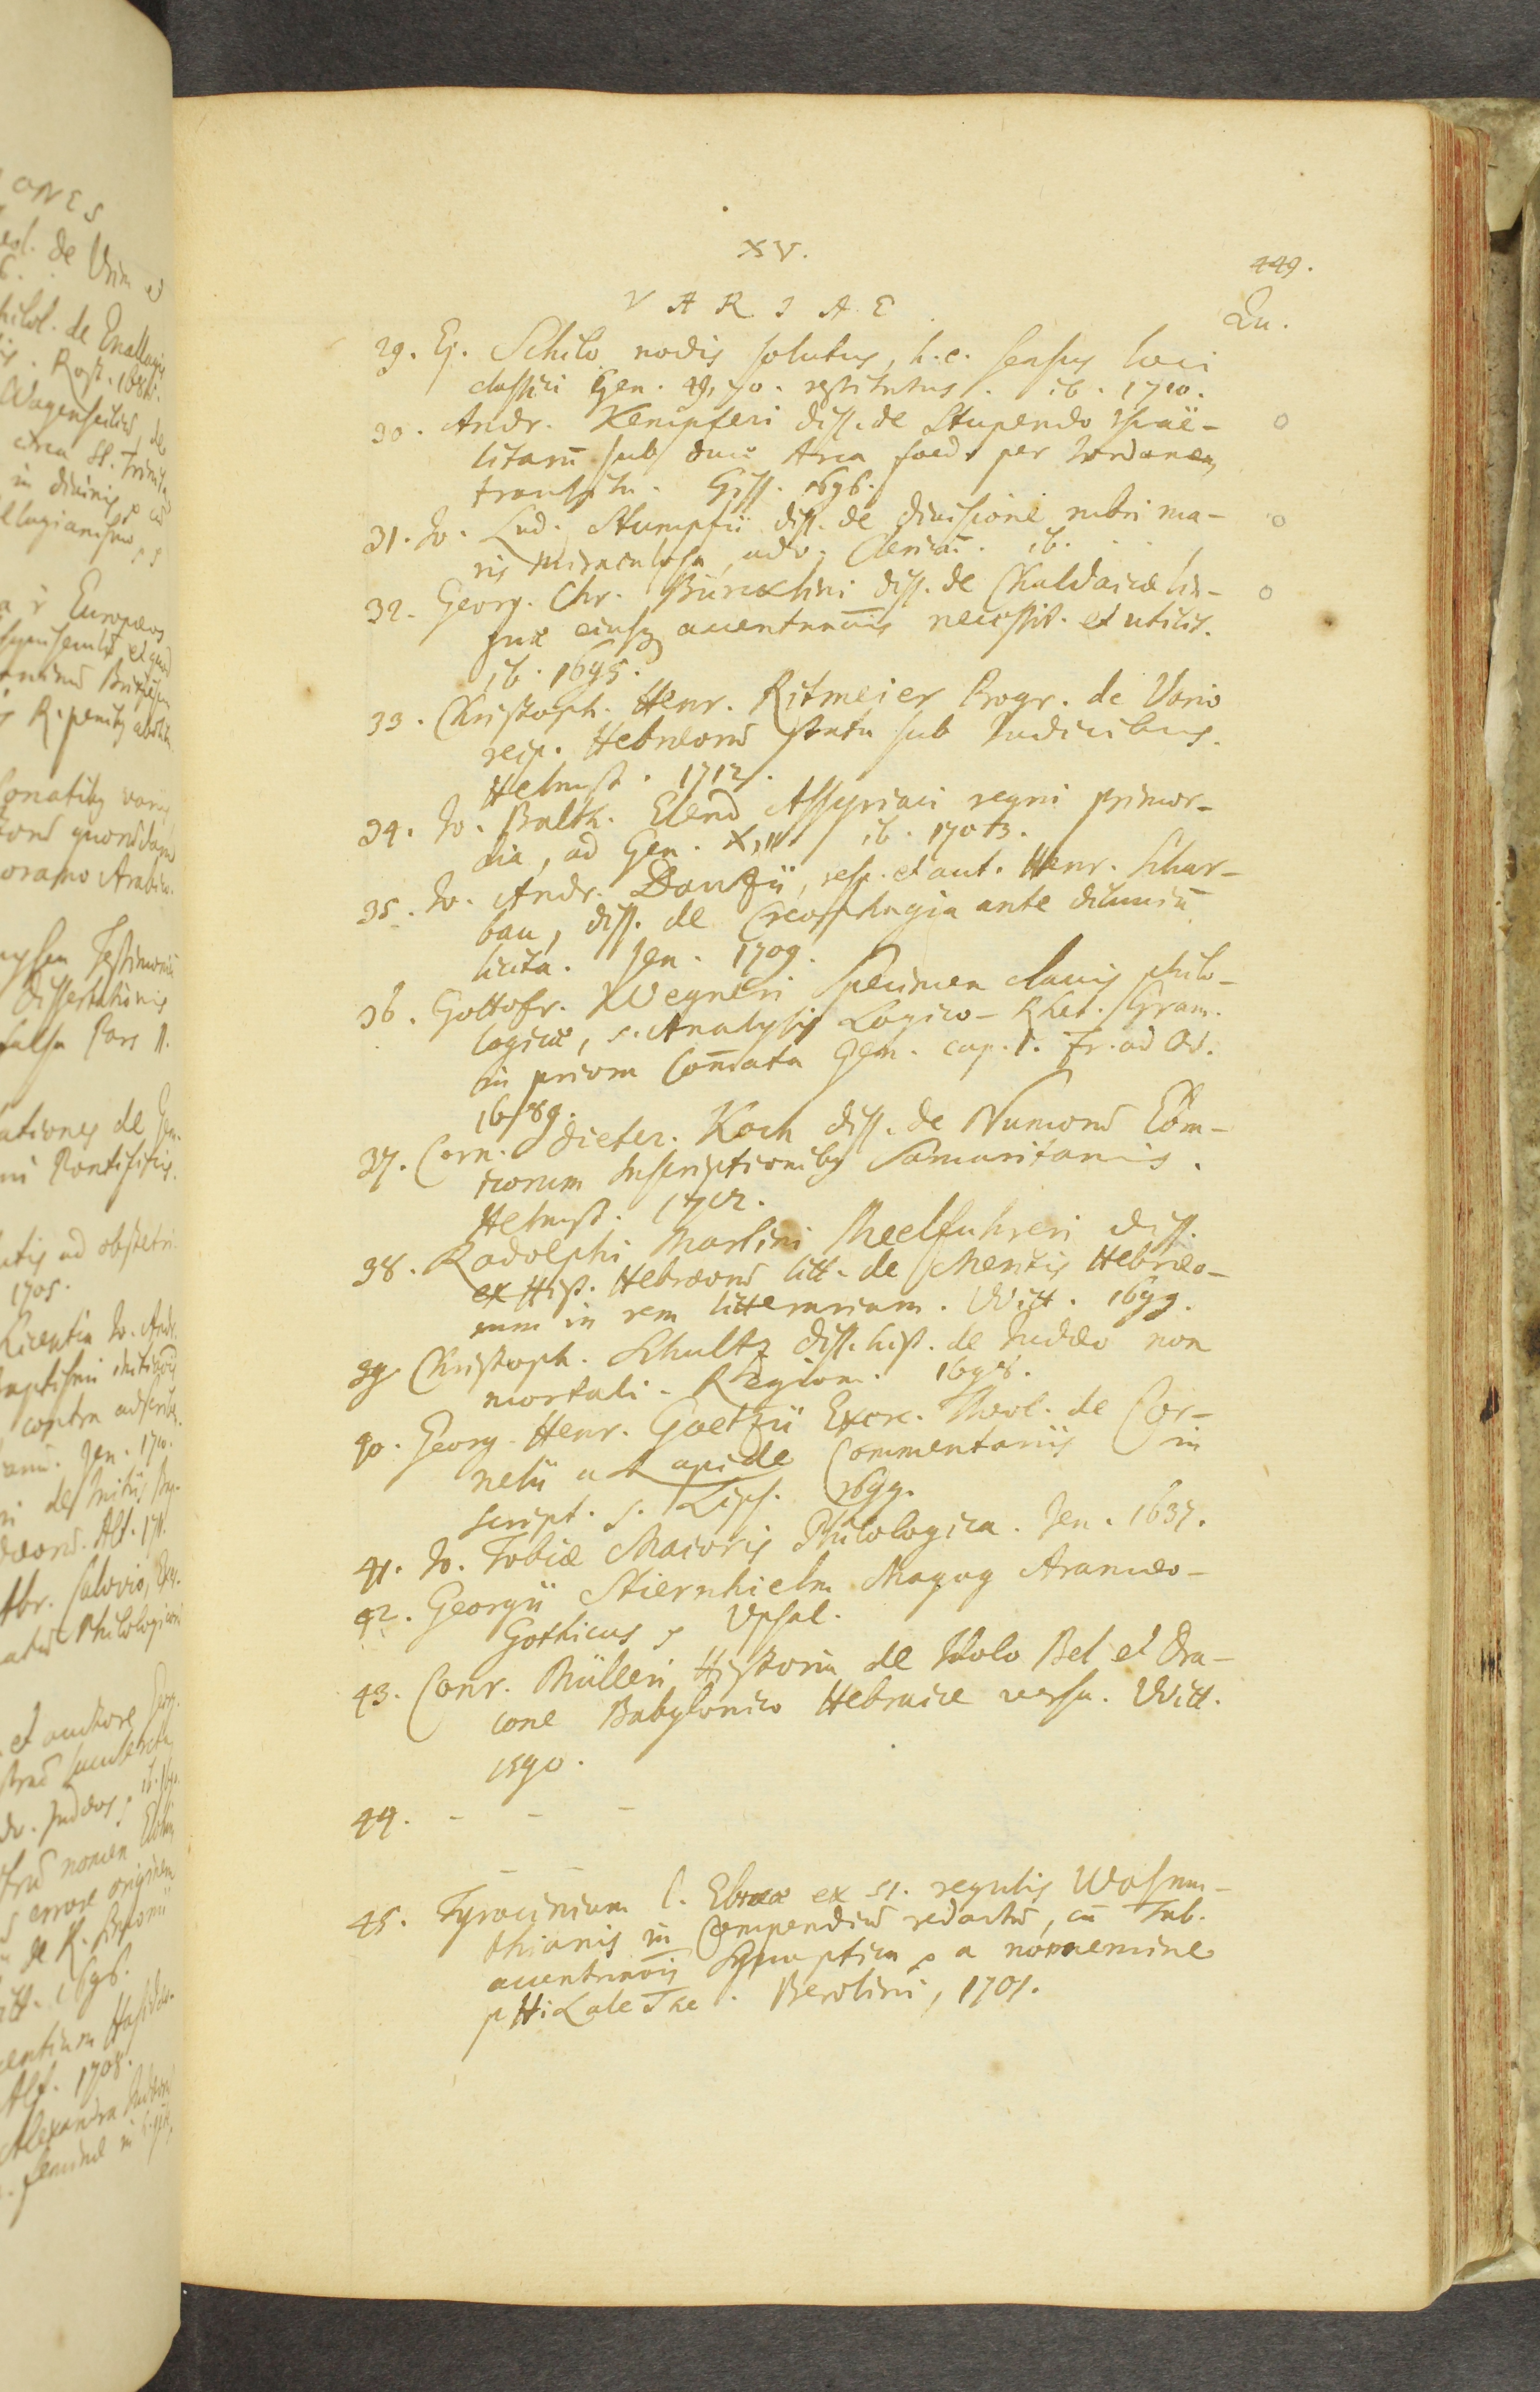 XV.
449.
VARIAE
Qu.
29. Ej. Schilo nodis solutus, h.e. sensus loci
classici Gen. 49, 10. restitutus. ib. 1710.
30. Andr. Kempferi diss. de Stupendo Israë-
litarū sub duce Arca foed. per Jordanem
transitu. Giss. 1696.
31. Jo. Lud. Stumpfii diss. de divisione rubri ma-
ris miraculosa, adv. Clericū. ib.
32. Georg. Chr. Bürcklini diss. de Chaldaicæ lin-
guæ eiusq accentuu͞is necessit. et utilit.
ib. 1695.
33. Christoph. Henr. Ritmeier Progr. de Vario
reip. Hebræorū statu sub Judicibus.
Helmst. 1712.
34. Jo. Balth. Elend Assyriaci regni primor-
dia, ad Gen. X, 11 ib. 1703.
35. Jo. Andr. Danzii, resp. et aut. Henr. Schar-
bau, diss. de Creophagia ante diluviū
licita. Jen. 1709.
36. Gottofr. Wegneri Specimen clavis philo-
logicæ, s. Analysis Logico-Rhet. Gram.
in priora Com̄ata Gen. cap. 1. Fr. ad Od.
1689.
37. Corn. Dieter. Koch diss. de Numorū Ebræ-
icorum Inscriptionibg Samaritanis.
Helmst. 1712.
38. Rodolphi Martini Meelfuhreri diss.
ex Hist. Hebræorū litt. de Meritis Hebræo-
rum in rem litterariam. Witt. 1699.
39 Christoph. Schultz diss. hist. de Judæo non
mortali. Regiom. 1698.
40. Georg. Henr. Goetzii Exerc. Theol. de Cor-
nelii a Lapide Commentariis in
script. s. Lips. 1699.
41. Jo. Tobiæ Maioris Philologica. Jen. 1637.
42. Georgii Stiernhielm Magog Aramæo-
Gothicus, Upsal.
43. Conr. Mülleri Historia de Idolo Bel et Dra-
cone Babylonico Hebraice versa. Witt.
1590.
44. - - -
- -
45. Tyrocinium l. Ebrææ ex 51. regulis Wasmu-
thianis in Compendiū redactū, cū Tab.
accentu͞is Synoptica, a nonnemine
pHiLaleThe. Berolini, 1701.